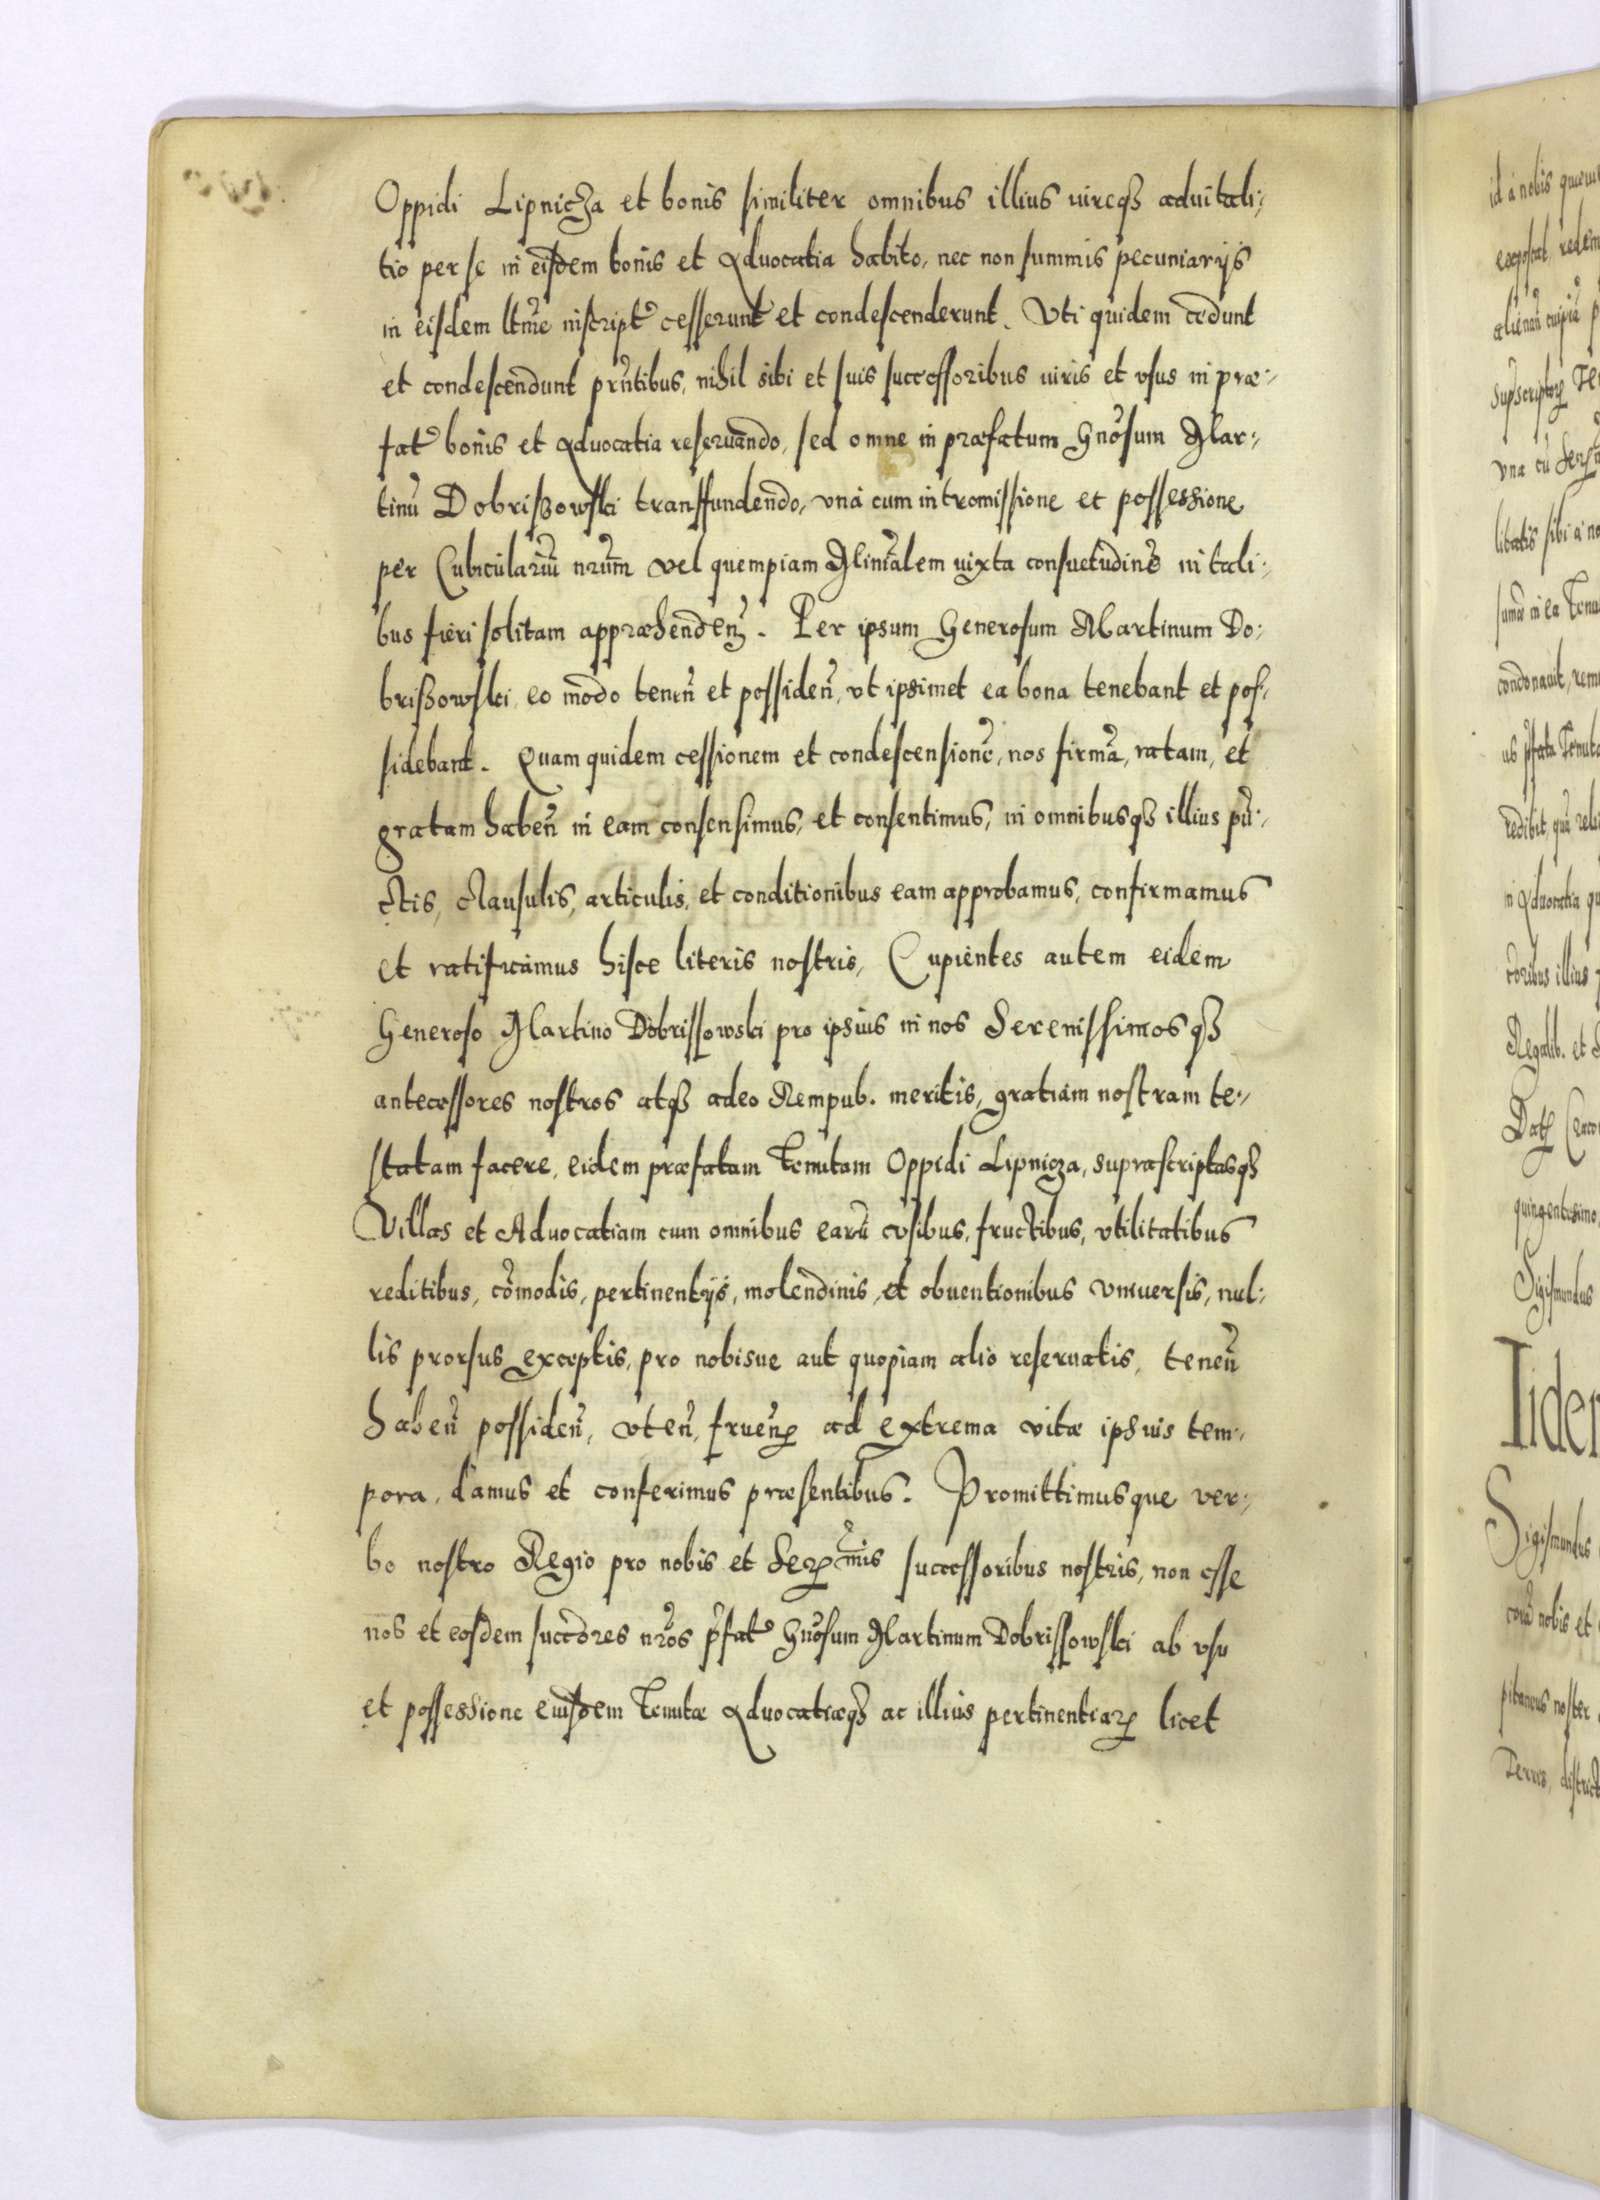 Oppidi Lipnicza et bonis similiter omnibus illius iureq3 aduitali-
tio per se in eisdem bonis et Aduocatia habito, nec non summis pecuniarijs
in eisdem ltme inscript cesserunt et condescenderunt. Vti quidem cedunt
et condescendunt prntibus, nihil sibi et suis successoribus iuris et vsus in præ-
fat bonis et Aduocatia reseruando, sed omne in præfatum Gnosum Mar-
tinu Dobrißowski transfundendo, vna cum intromissione et possessione
per Cubicularium nrum vel quempiam Minralem iuxta consuetudine in tali-
bus fieri solitam appræhenden. Per ipsum Generosum Martinum Do-
brißowski eo modo tenen et possiden, vt ipsimet ea bona tenebant et pos-
sidebant. Quam quidem cessionem et condescensione, nos firma, ratam, et
gratam haben in eam consensimus, et consentimus, in omnibusq3 illius pu-
ctis, clausulis, articulis, et conditionibus eam approbamus, confirmamus
et ratificamus hisce literis nostris, Cupientes autem eidem
Generoso Martino Dobrissowski pro ipsius in nos Serenissimosq3
antecessores nostros atq3 adeo Rempub. meritis, gratiam nostram te-
statam facere, eidem præfatam Tenutam Oppidi Lipnicza, supræscriptasq3
Villas et Aduocatiam cum omnibus earu vsibus, fructibus, vtilitatibus
reditibus, comodis, pertinentijs, molendinis, et obuentionibus vniuersis, nul-
lis prorsus exceptis, pro nobisue aut quopiam alio reseruatis, tenen
haben possiden, vten, fruen ad extrema vitæ ipsius tem-
pora, damus et conferimus præsentibus. Promittimusque ver-
bo nostro Regio pro nobis et Sermis successoribus nostris, non esse
nos et eosdem succores nros pfat Gnosum Martinum Dobrissowski ab vsu
et possessione eiusdem Tenutæ Aduocatiæq3 ac illius pertinentiar licet